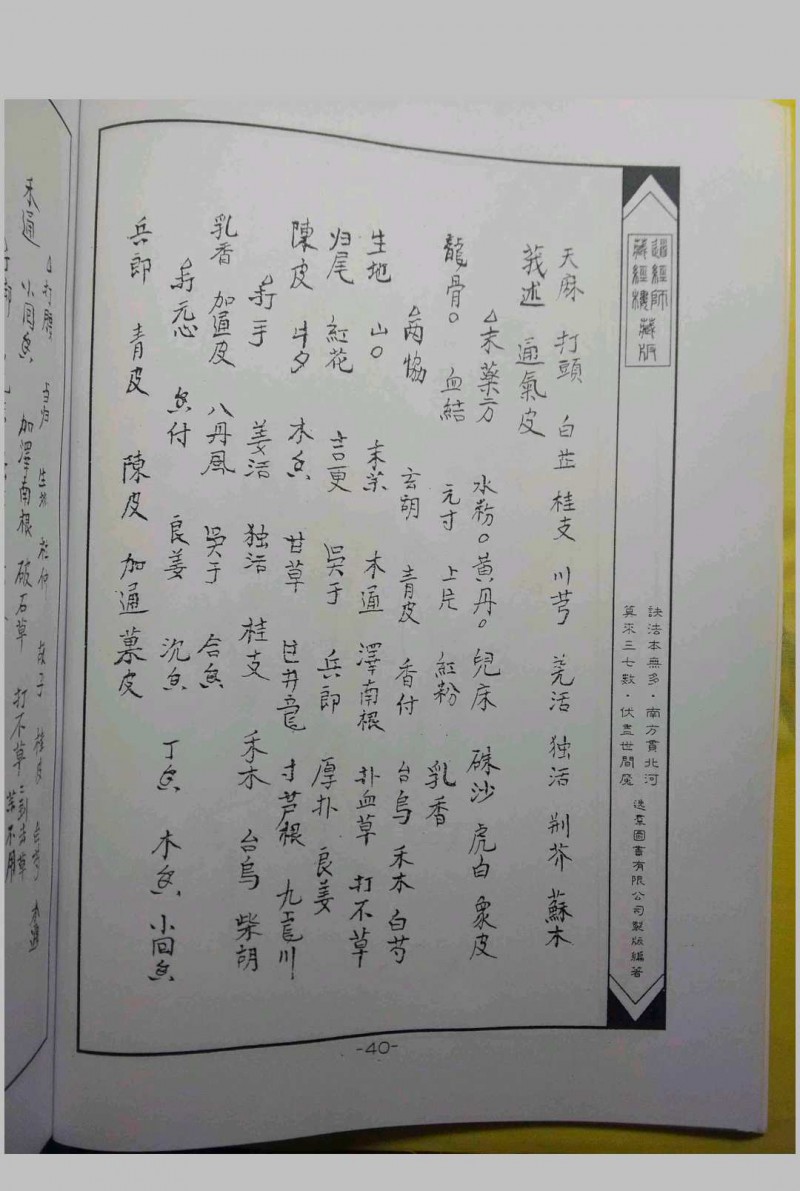 藏經樓藏版
訣法本無多·南方貫北河
算來三七數·伏盡世間
逸群圖書有限公司製版編著
天麻 打頭 白芷 桂支 川芎 羌活 独活 荆芥 蘇木
莪述 通氣皮
△末藥方 水粉。黃丹。兒床 硃沙 虎白 象皮
龍骨。 血結 元寸 上片 紅粉 乳香
△两恊 玄胡 青皮 香付 台烏 禾木 白芍
生地 山○ 末藥 木通 澤南根 扑血草 打不草
归尾 紅花 吉更 吳于 兵郎 厚扑 良姜
陳皮 牛夕 木香 甘草 寸芦根
△打手 姜活 独活 桂支 禾木 台烏 柴胡
乳香 加通皮 八丹風 吳于 合香
△打元心 香付 良姜 沉香 丁香 木香 小回香
兵郎 青皮 陳皮 加通 皮
△打腰 当归 生地 杜仲 桂皮
木通 小回香 加澤南根 破石草 打不草
-40-